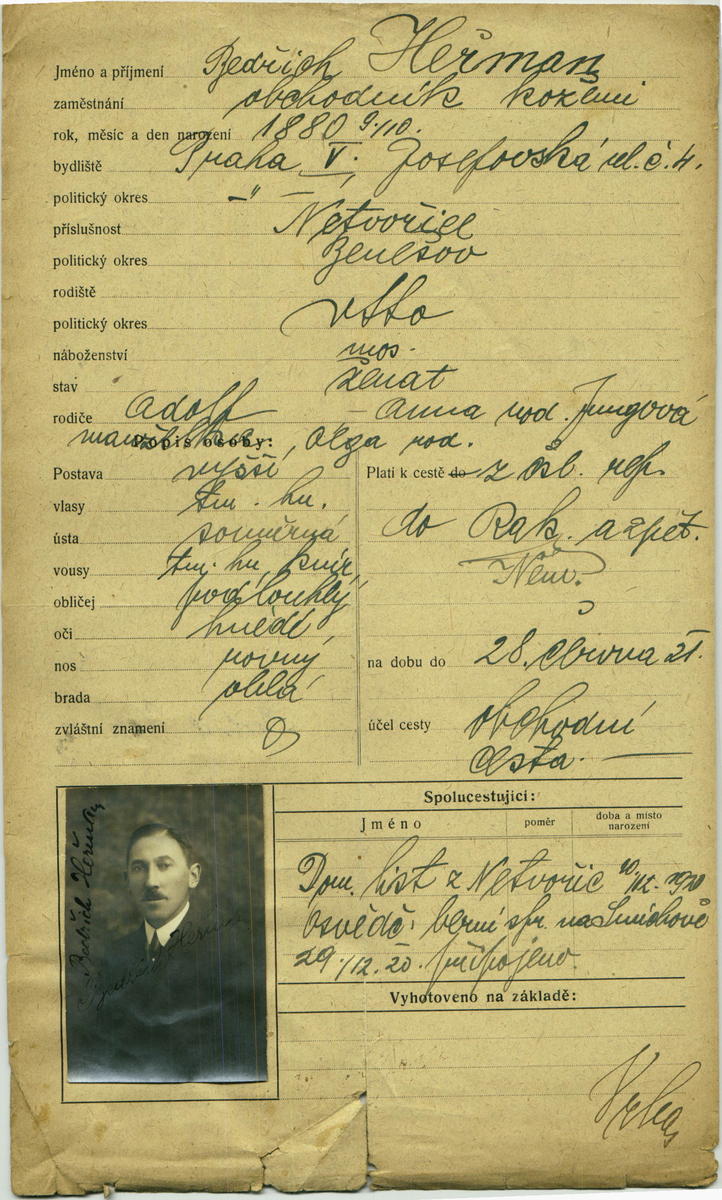 Jméno a příjmení Bedřich Heřman
zaměstnání obchodník kožemi
rok, měsíc a den narození 1880 9./10.
bydliště Praha V. Josefovská ul. č. 4.
politický okres –"–
příslušnost Netvořice
politický okres Benešov
rodiště
politický okres
náboženství mos.
stav ženat
rodiče Adolf – Anna rod. Jungová
Olga rod.
Popis osoby:
Postava vyšší
vlasy tm. hn.
ústa souměrná
vousy tm. hn. knír
obličej podlouhlý
oči hnědé
nos rovný
brada oblá
zvláštní znamení
Platí k cestě do z čsl. rep.
do Rak. a zpět.
Něm.
na dobu do 28. června 21.
účel cesty obchodní
cesta.
Spolucestující:
Jméno poměr doba a místo narození
Dom. list z Netvořic 1920
osvědč. berní spr. na Smíchově
29./12. 20. připojeno.
Vyhotoveno na základě:
Bedřich Heřman
Bedřich Heřman